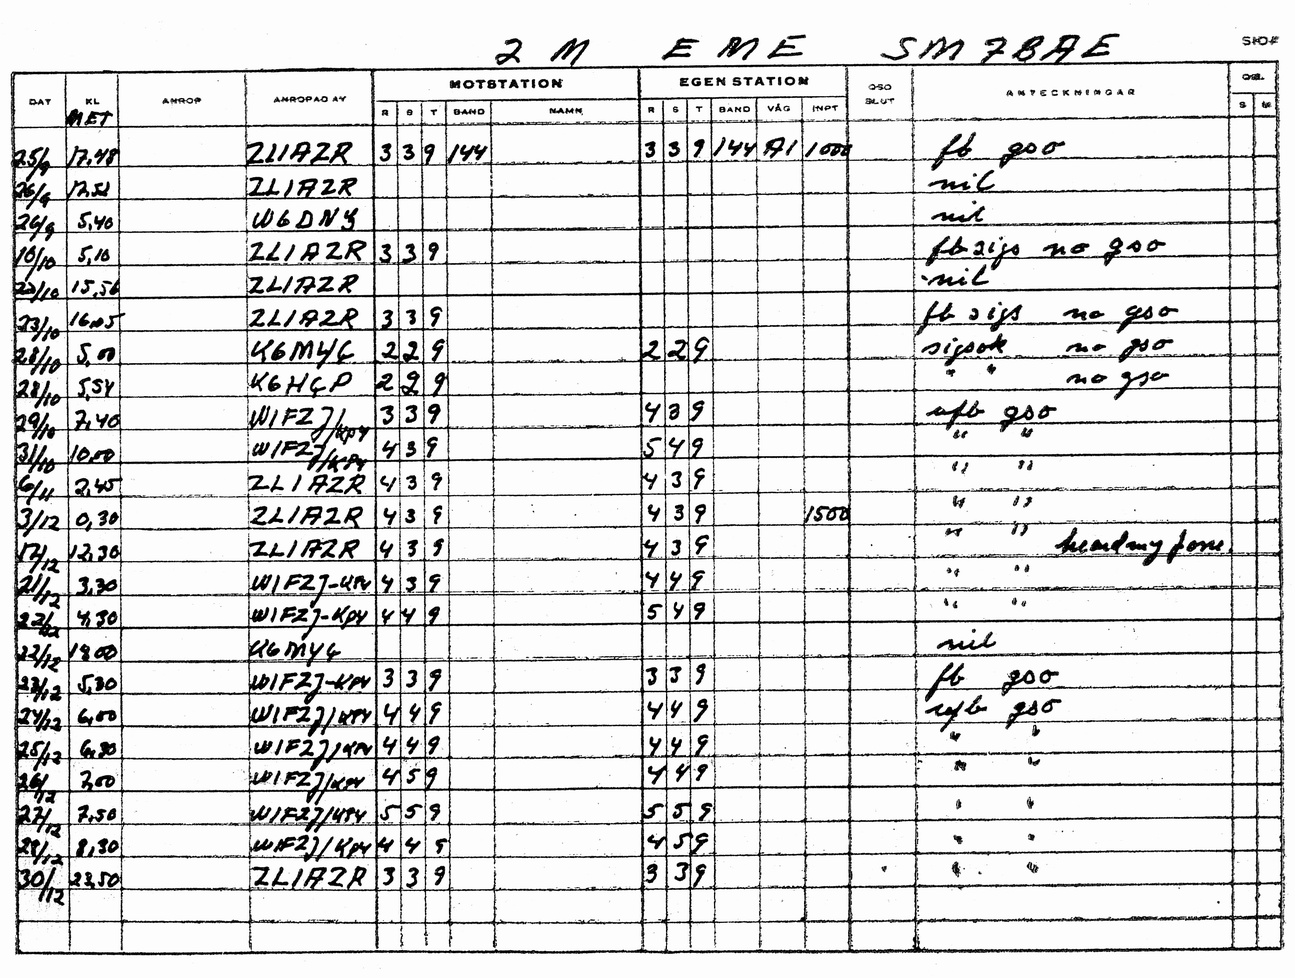 2 M EME SM7BAE
MOTSTATION EGEN STATION
DAT KL ANROP ANROPAD AV R S T BAND NAMN R S T BAND VÅG INPT QSO SLUT ANTECKNINGAR QSL S M
MET
25/9 17,48 ZL1AZR 3 3 9 144 3 3 9 144 A1 1000 fb qso
26/9 ZL1AZR nil
26/9 5,40 W6DNG nil
10/10 5,10 ZL1AZR 3 3 9 fb sigs no qso
15,56 ZL1AZR nil
23/10 16,05 ZL1AZR 3 3 9 fb sigs no qso
28/10 5,00 K6MYC 2 2 9 2 2 9 sigs ok no qso
28/10 5,54 K6HCP 2 2 9 " " no qso
29/10 7,40 W1FZJ/KP4 3 3 9 4 3 9 ufb qso
31/10 10,00 W1FZJ/KP4 4 3 9 5 4 9 " "
6/11 2,45 ZL1AZR 4 3 9 4 3 9 " "
3/12 0,30 ZL1AZR 4 3 9 4 3 9 1500 " "
17/12 12,30 ZL1AZR 4 3 9 4 3 9 " " heard my fone
21/12 3,30 W1FZJ-KP4 4 3 9 4 4 9 " "
22/12 4,30 W1FZJ-KP4 4 4 9 5 4 9 " "
22/12 18,00 K6MYC nil
23/12 5,30 W1FZJ-KP4 3 3 9 3 3 9 fb qso
24/12 6,00 W1FZJ/KP4 4 4 9 4 4 9 ufb qso
25/12 6,30 W1FZJ/KP4 4 4 9 4 4 9 " "
26/12 7,00 W1FZJ/KP4 4 5 9 4 4 9 " "
27/12 7,50 W1FZJ/KP4 5 5 9 5 5 9 " "
28/12 8,30 W1FZJ/KP4 4 4 9 4 5 9 " "
30/12 23,50 ZL1AZR 3 3 9 3 3 9 " "